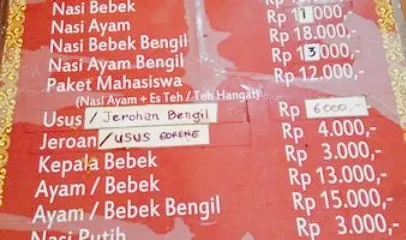 Nasi Bebek
Nasi Ayam Rp 11000,-
Nasi Bebek Bengil Rp 18.000,-
Nasi Ayam Bengil Rp 13000,-
Paket Mahasiswa Rp 12.000,-
(Nasi Ayam + Es Teh / Teh Hangat)
Usus / Jerohan Bengil Rp 6000,-
Jeroan / USUS GORENG Rp 4.000,-
Kepala Bebek Rp 3.000,-
Ayam / Bebek Rp 13.000,-
Ayam / Bebek Bengil Rp 15.000,-
Nasi Putih Rp 3.000,-